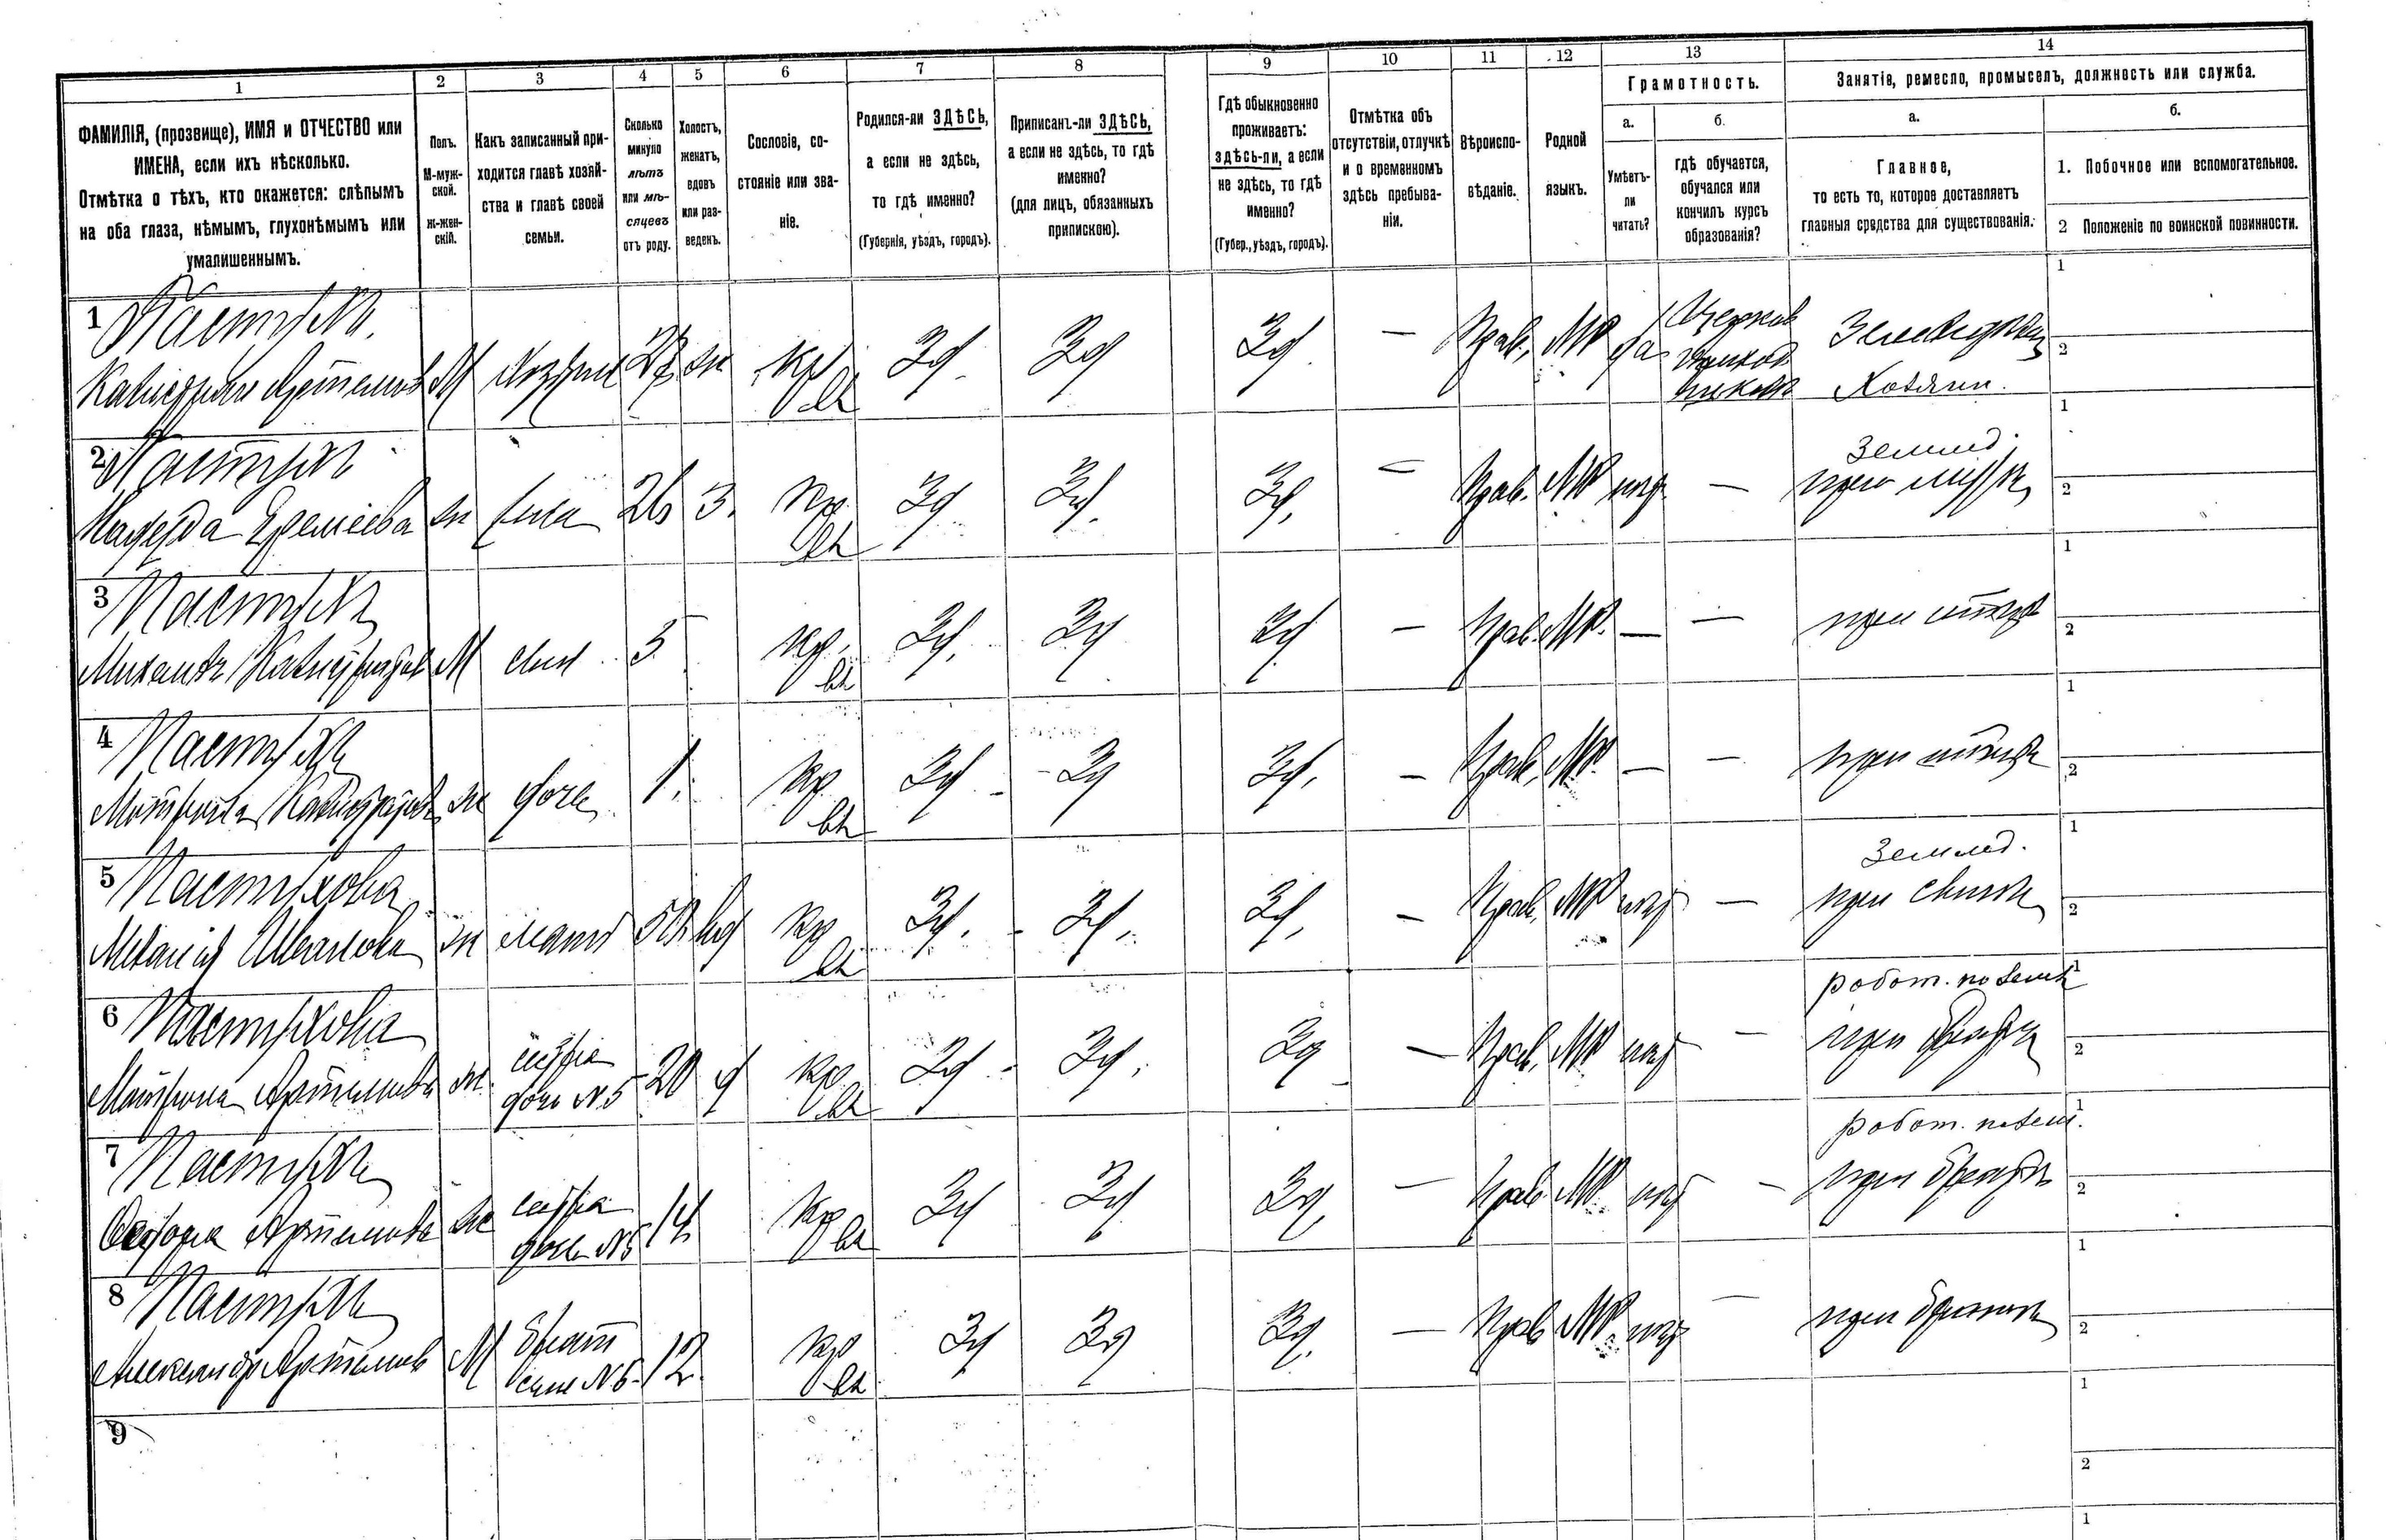 1
2
3
4
5
6
7
8
9
10
11
12
13
14
ФАМИЛІЯ, (прозвище), ИМЯ и ОТЧЕСТВО или
ИМЕНА, если ихъ нѣсколько.
Отмѣтка о тѣхъ, кто окажется: слѣпымъ
на оба глаза, нѣмымъ, глухонѣмымъ или
умалишеннымъ.
Полъ.
М-муж-
ской.
ж-жен-
скій.
Какъ записанный при-
ходится главѣ хозяй-
ства и главѣ своей
семьи.
Сколько
минуло
лѣтъ
или мѣ-
сяцевъ
отъ роду.
Холостъ,
женатъ,
вдовъ
или раз-
веденъ.
Сословіе, со-
стояніе или зва-
ніе.
Родился-ли ЗДѢСЬ,
а если не здѣсь,
то гдѣ именно?
(Губернія, уѣздъ, городъ).
Приписанъ-ли ЗДѢСЬ,
а если не здѣсь, то гдѣ
именно?
(для лицъ, обязанныхъ
припискою).
Гдѣ обыкновенно
проживаетъ:
здѣсь-ли, а если
не здѣсь, то гдѣ
именно?
(Губер., уѣздъ, городъ).
Отмѣтка объ
отсутствіи, отлучкѣ
и о временномъ
здѣсь пребыва-
ніи.
Вѣроиспо-
вѣданіе.
Родной
языкъ.
Грамотность.
а.
б.
Умѣетъ-
ли
читать?
гдѣ обучается,
обучался или
кончилъ курсъ
образованія?
Занятіе, ремесло, промыселъ, должность или служба.
а.
б.
Главное,
то есть то, которое доставляетъ
главныя средства для существованія.
1. Побочное или вспомогательное.
2 Положеніе по воинской повинности.
1 Пастухъ
М 27 ж кр Зд Зд Зд — Прав. МР да
Хозяинъ.
1
2
2 Пастухъ
Надежда Еремѣева ж жена 26 З. кр Зд Зд. Зд. — Прав. МР —
Землед.
при мужѣ
1
2
3 Пастухъ
Михаилъ М сынъ 5 кр. Зд. Зд Зд — Прав. МР. — — при отцѣ
1
2
4 Пастухъ
ж дочь 1. кр Зд Зд Зд. — Прав. МР. — — при отцѣ
1
2
5 Пастухова
Меланія Иванова ж мать вд кр Зд. Зд. Зд. — Прав. МР —
Землед.
при сынѣ
1
2
6 Пастухова
Матрона Артемова ж. сестра
дочь №5 20 д кр Зд Зд. Зд — Прав. МР —
работ. по земл
при братѣ
1
2
7 Пастухъ
Артемова ж сестра
дочь №5 14 кр Зд Зд Зд. — Прав. МР —
работ. по земл.
при братѣ
1
2
8 Пастухъ
Александръ Артемовъ М братъ
сынъ №5 12 кр Зд Зд Зд. — Прав МР —
при братѣ
1
2
9
1
2
1